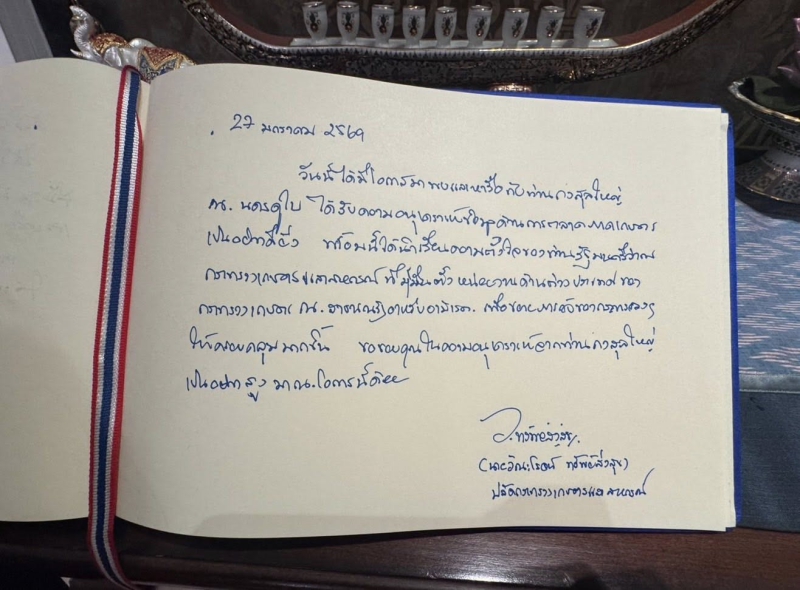 27 มกราคม 2569
วันนี้ได้มีโอกาสมาพบและหารือกับท่านกงสุลใหญ่
ณ. นครดูไบ ได้รับความอนุเคราะห์ข้อมูลด้านการตลาดภาคเกษตร
เป็นอย่างดียิ่ง พร้อมนี้ได้เรียนความตั้งใจของท่านรัฐมนตรีว่าการ
กระทรวงเกษตรและสหกรณ์ ที่มุ่งมั่นตั้ง หน่วยงานด้านต่างประเทศ ของ
กระทรวงเกษตร ณ. สาธารณรัฐอาหรับเอมิเรต. เพื่อขยายภารกิจของกระทรวงฯ
ให้ครอบคลุมมากขึ้น ขอขอบคุณในความอนุเคราะห์จากท่านกงสุลใหญ่
เป็นอย่างสูง มา ณ. โอกาสนี้ด้วย
(นายวิณะโรจน์ ทรัพย์ส่งสุข)
ปลัดกระทรวงเกษตรและสหกรณ์